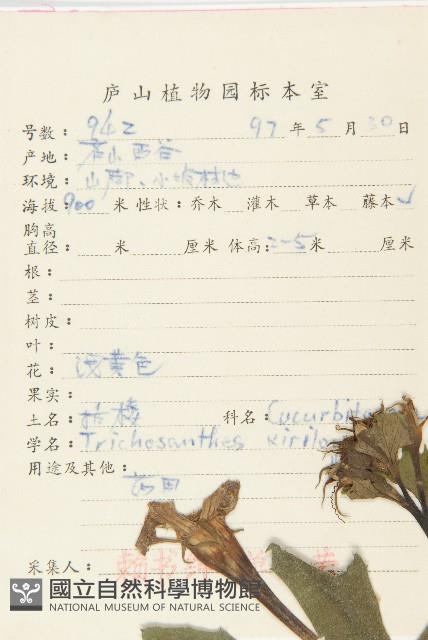 庐山植物园标本室
号数: 942 97年5月30日
产地: 庐山西谷
环境: 山脚、小坡林地
海拔: 900 米 性状: 乔木 灌木 草本 藤本✓
胸高
直径: 米 厘米 体高: 2-5米 厘米
根:
茎:
树皮:
叶:
花: 浅黄色
果实:
土名: 栝楼 科名: Cucurbit
学名: Trichosanthes kirilo
用途及其他:
药用
采集人:
國立自然科學博物館
NATIONAL MUSEUM OF NATURAL SCIENCE